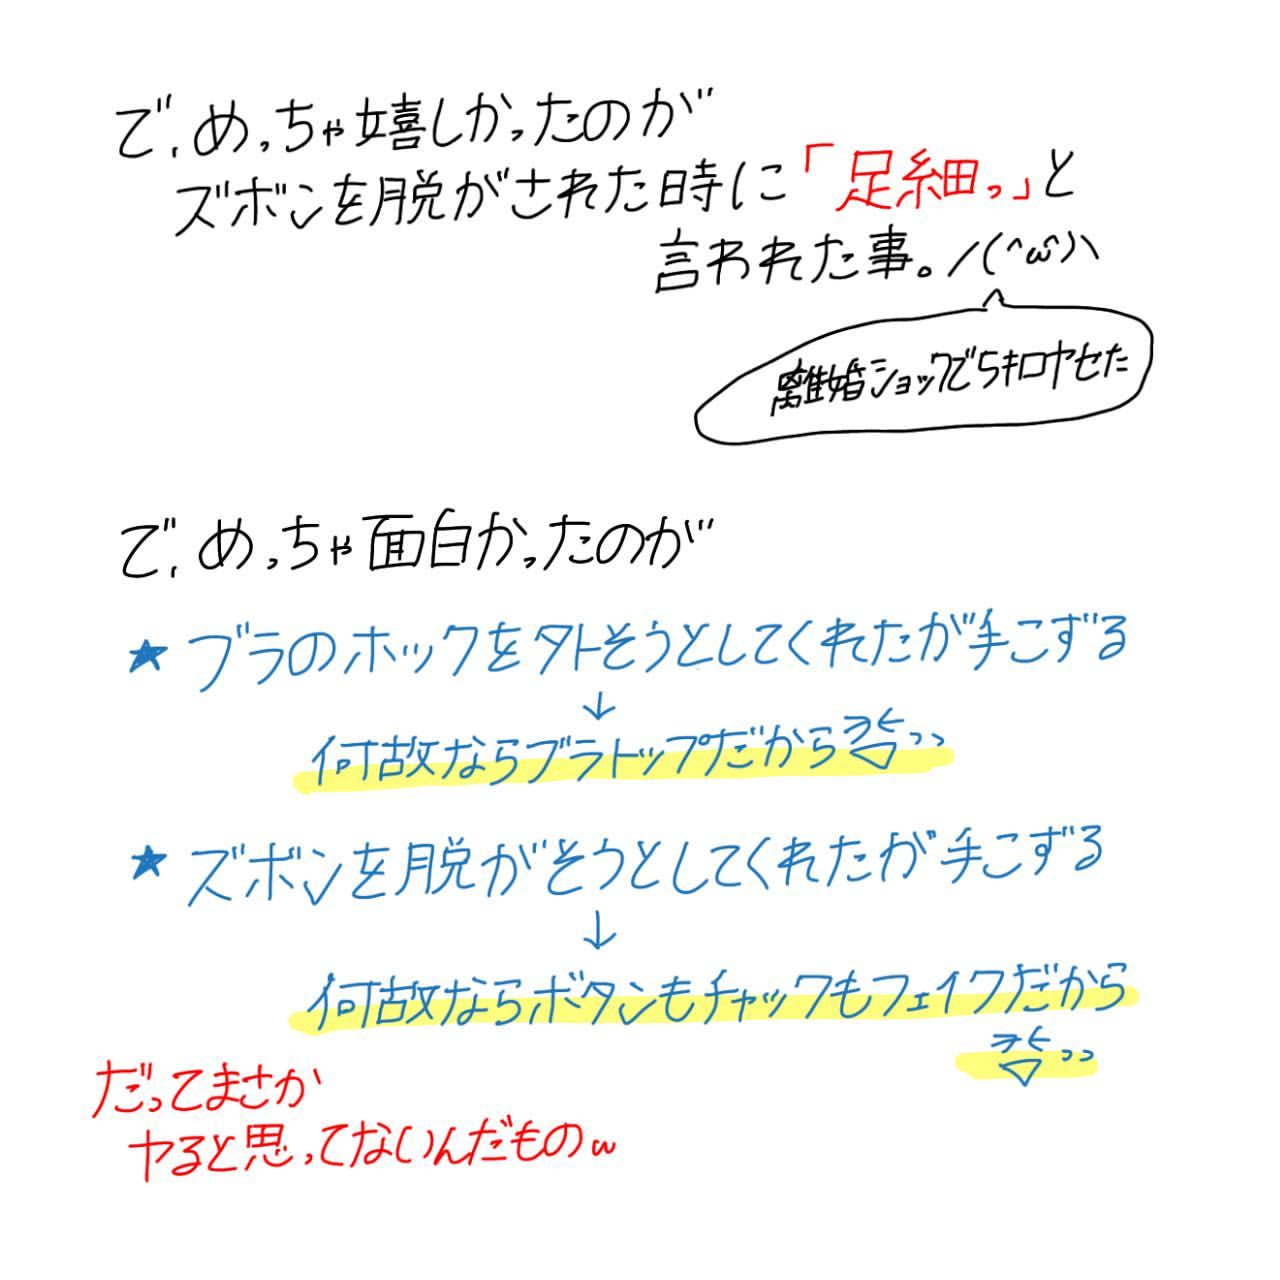 で、めっちゃ嬉しかったのが
ズボンを脱がされた時に「足細っ」と
言われた事。/(^ω^)\
離婚ショックで5キロヤセた
で、めっちゃ面白かったのが
★ ブラのホックを外そうとしてくれたが手こずる
↓
何故ならブラトップだから
★ ズボンを脱がそうとしてくれたが手こずる
↓
何故ならボタンもチャックもフェイクだから
だってまさか
ヤると思ってないんだものw